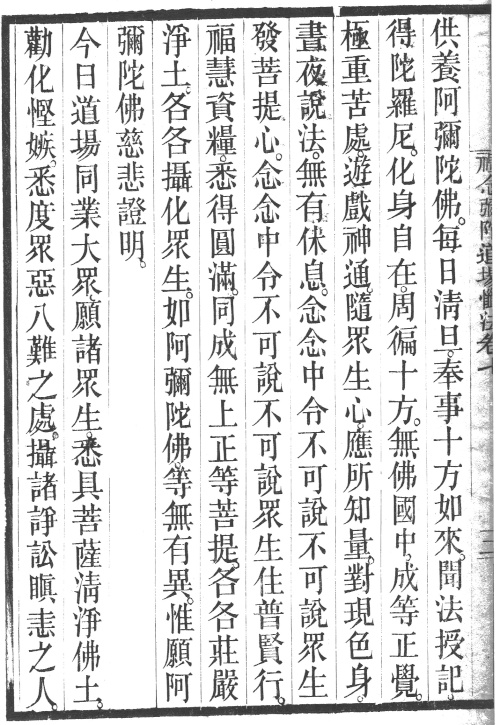 供養阿彌陀佛。每日清旦。奉事十方如來。聞法授記。
得陀羅尼。化身自在。周徧十方。無佛國中。成等正覺。
極重苦處。遊戲神通。隨眾生心。應所知量。對現色身。
晝夜說法。無有休息。念念中令不可說不可說眾生
發菩提心。念念中令不可說不可說眾生住普賢行。
福慧資糧。悉得圓滿。同成無上正等菩提。各各莊嚴
淨土。各各攝化眾生。如阿彌陀佛。等無有異。惟願阿
彌陀佛慈悲證明。
今日道場同業大眾。願諸眾生。悉具菩薩清淨佛土。
勸化慳嫉。悉度眾惡八難之處。攝諸諍訟瞋恚之人。